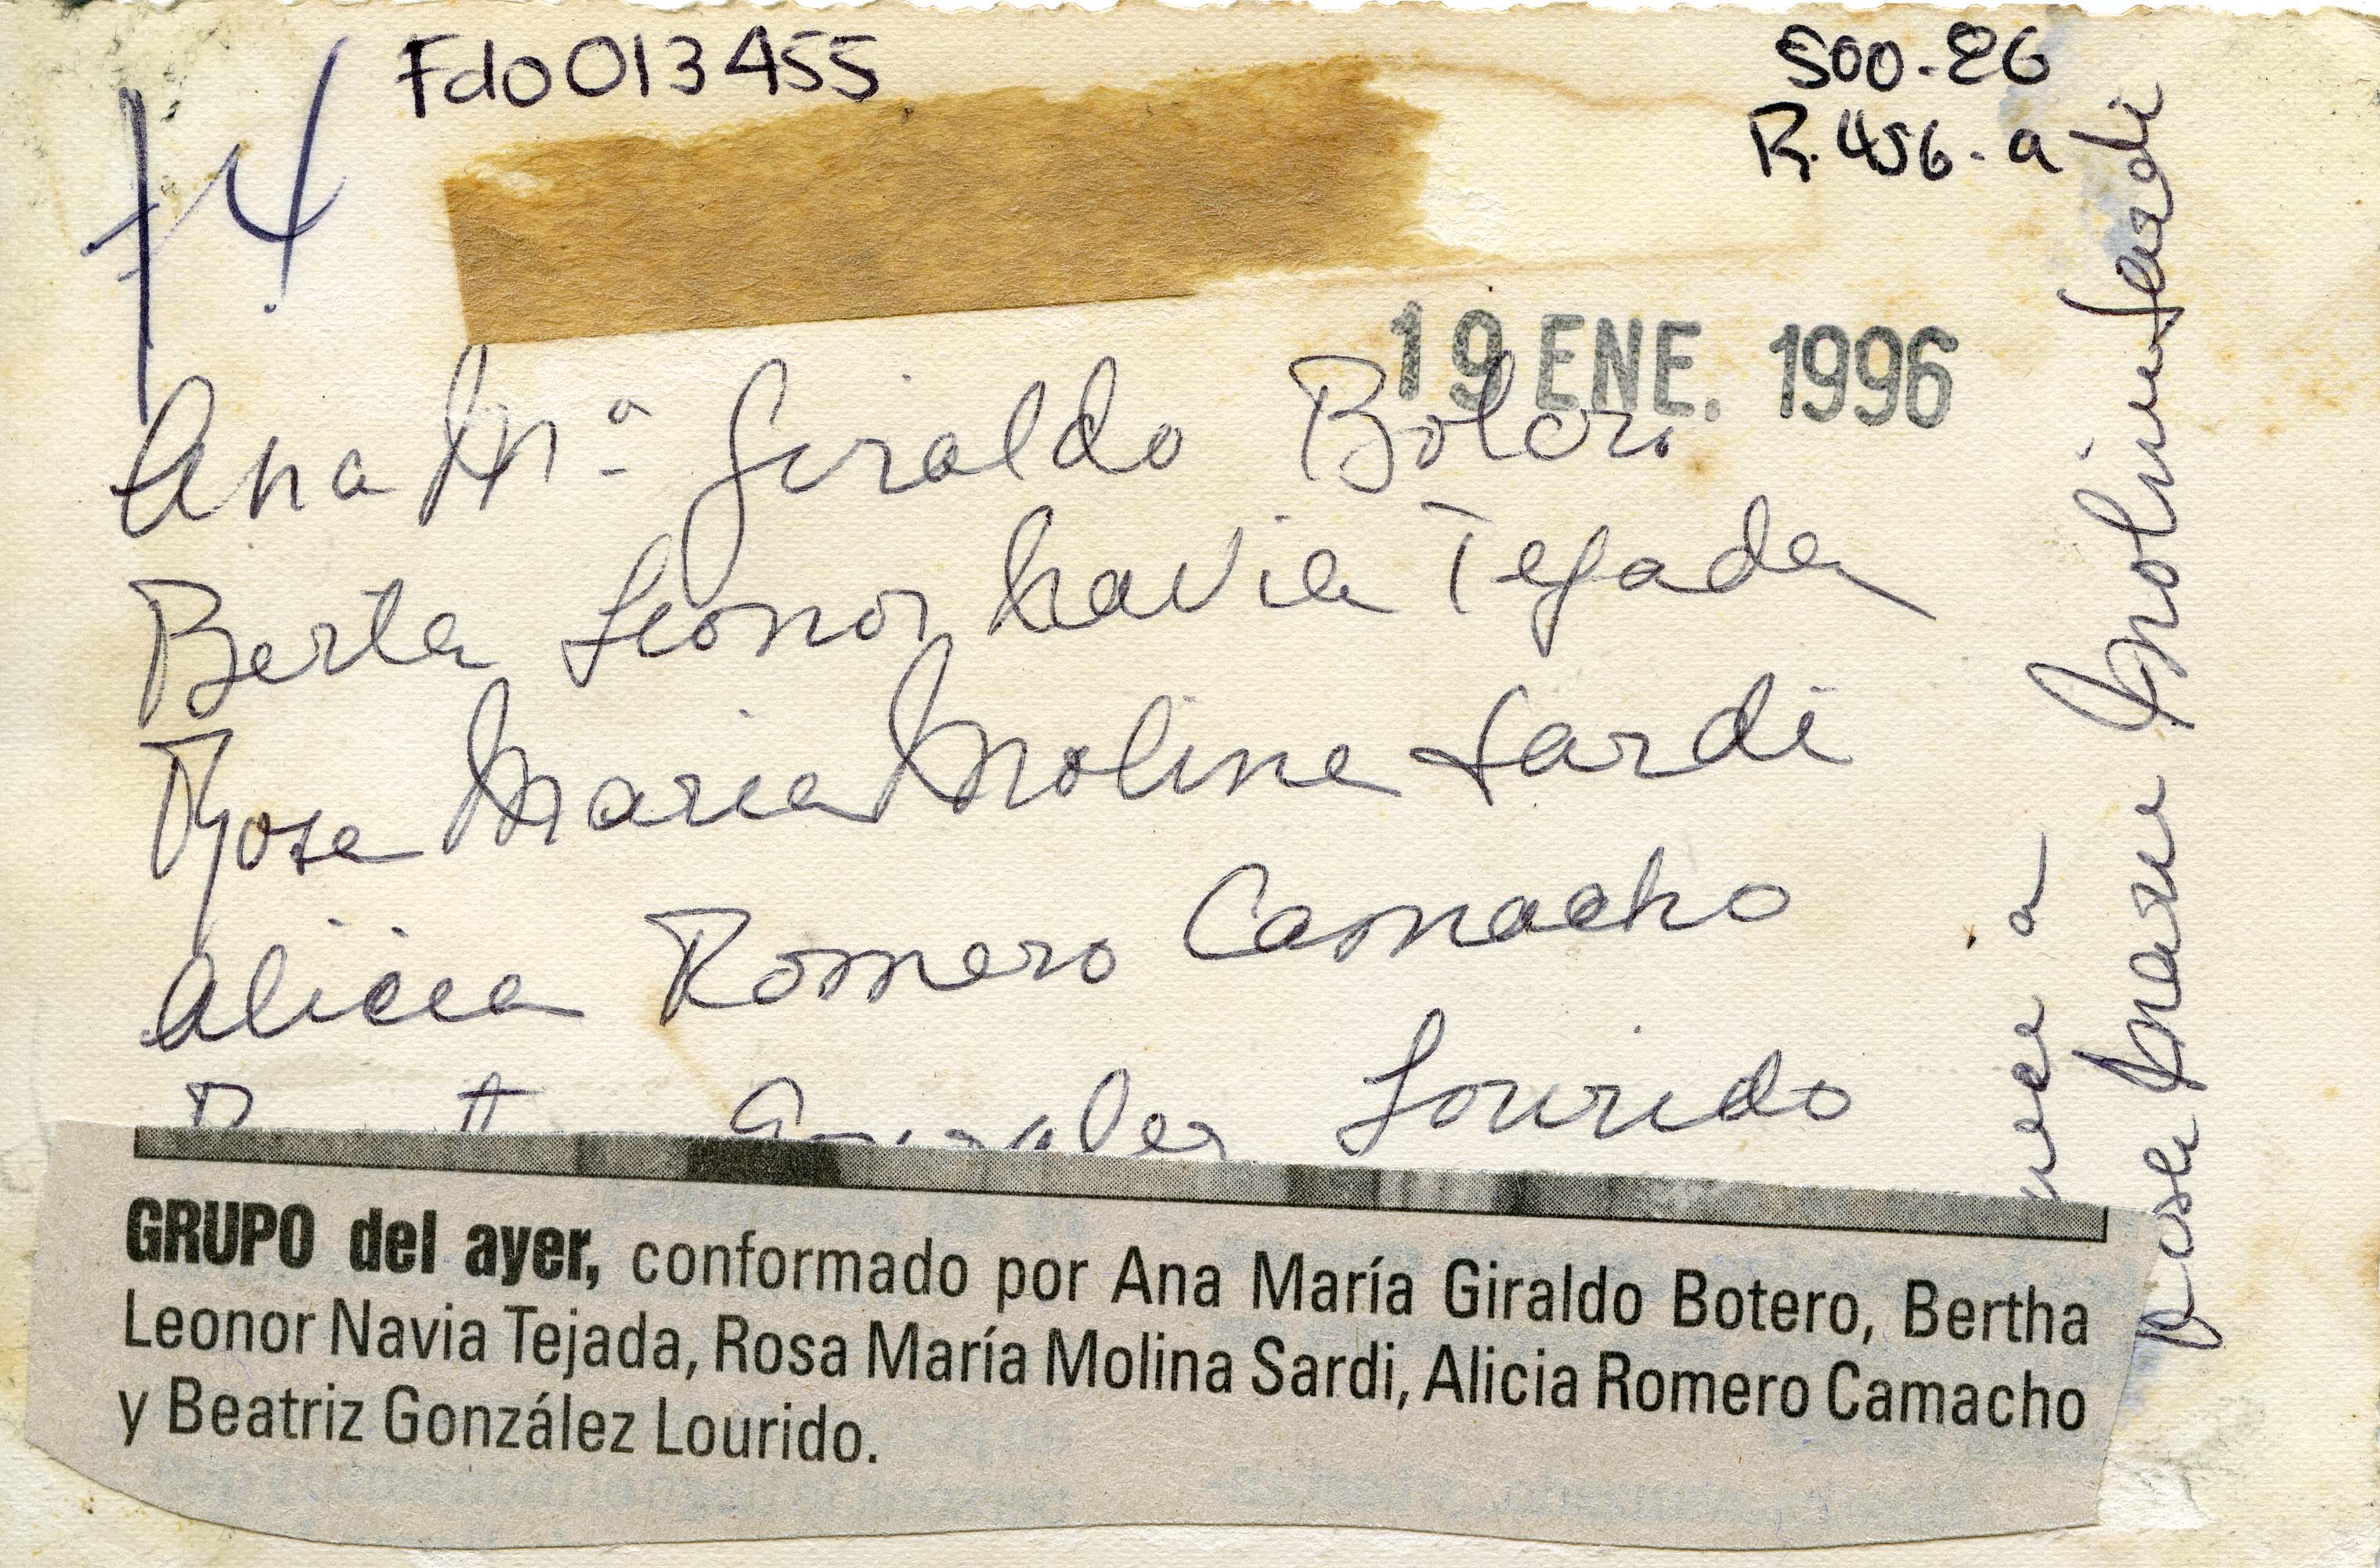 Fdo013455
500-26
R.456-a
14
19 ENE. 1996
Ana Mª Giraldo Boter
Berta Leonor Navia Tejada
Rosa Maria Molina Sardi
Alicia Romero Camacho
Gonzalez Lourido
a
Rosa Maria Molina Sardi
GRUPO del ayer, conformado por Ana María Giraldo Botero, Bertha
Leonor Navia Tejada, Rosa María Molina Sardi, Alicia Romero Camacho
y Beatriz González Lourido.